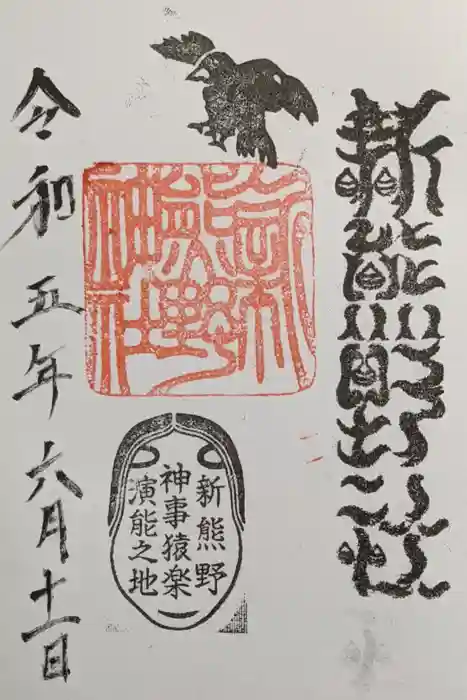 新熊野
新熊野神社
新熊野
神事猿楽
演能之地
令和五年六月十一日